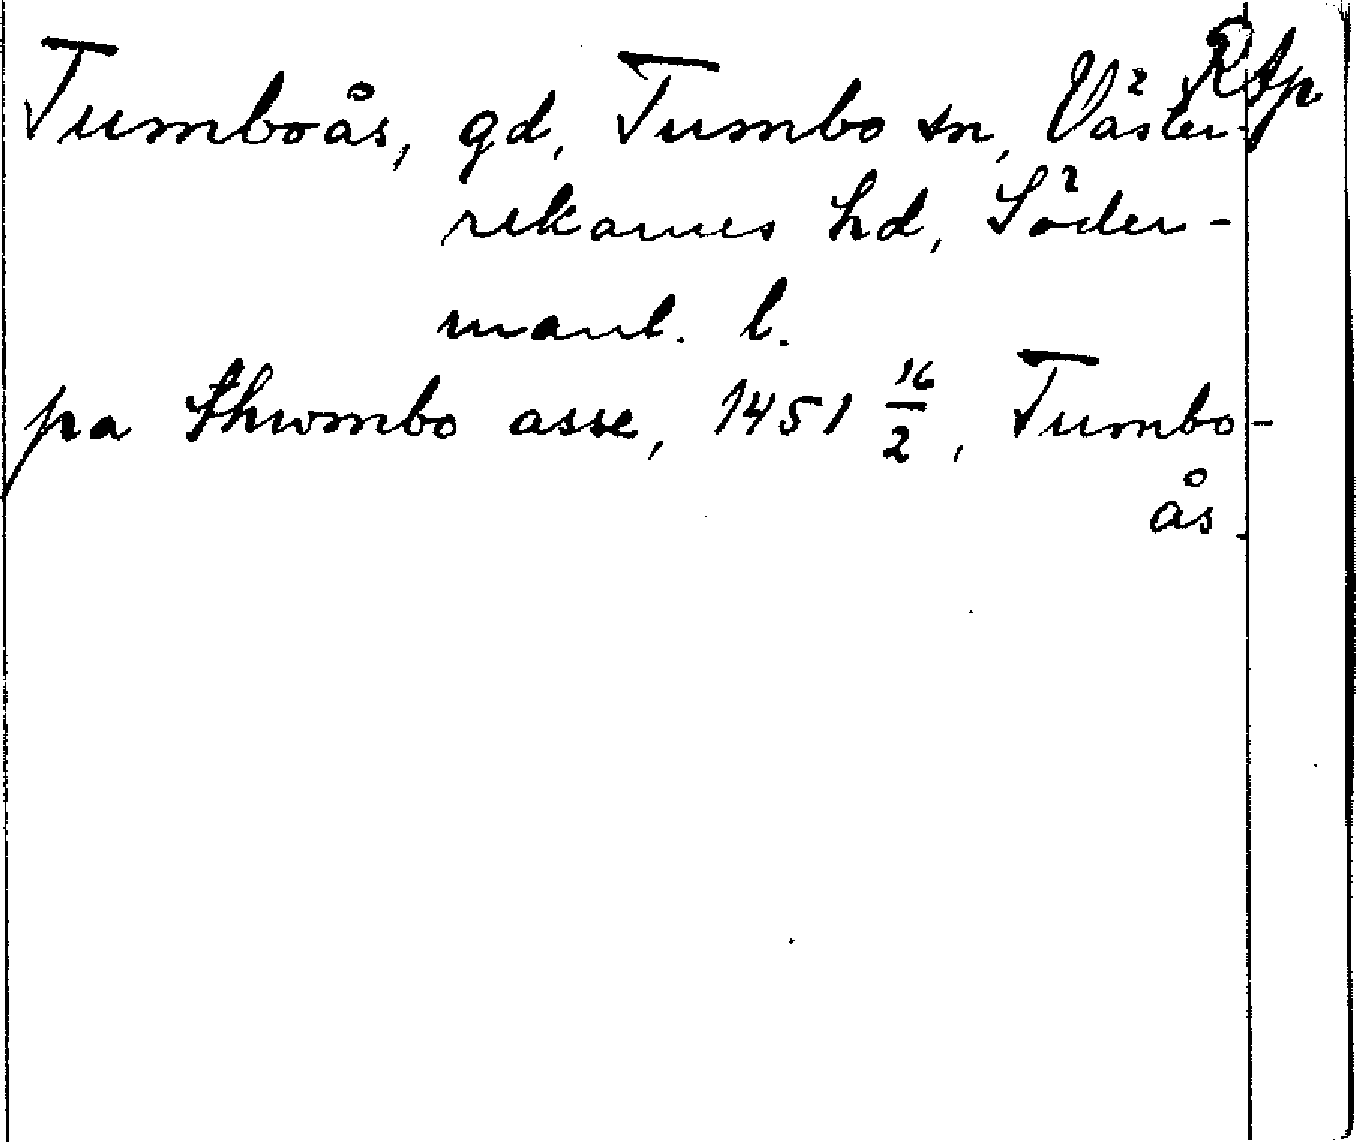 RAp
Tumboås, gd, Tumbo sn, Väster-
rekarnes hd, Söder-
manl. l.
pa Thwmbo asse, 1451 16/2, Tumbo-
ås.